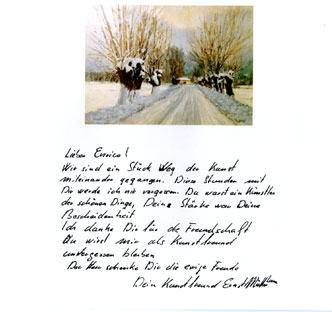 Lieber Enrico!
Wir sind ein Stück Weg der Kunst
miteinander gegangen. Diese Stunden mit
Dir werde ich nie vergessen. Du warst ein Künstler
der schönen Dinge, Deine Stärke war Deine
Bescheidenheit
Ich danke Dir für die Freundschaft
Du wirst mir als Kunstfreund
unvergessen bleiben.
Der Herr schenke Dir die ewige Freude
Dein Kunstfreund Ernst